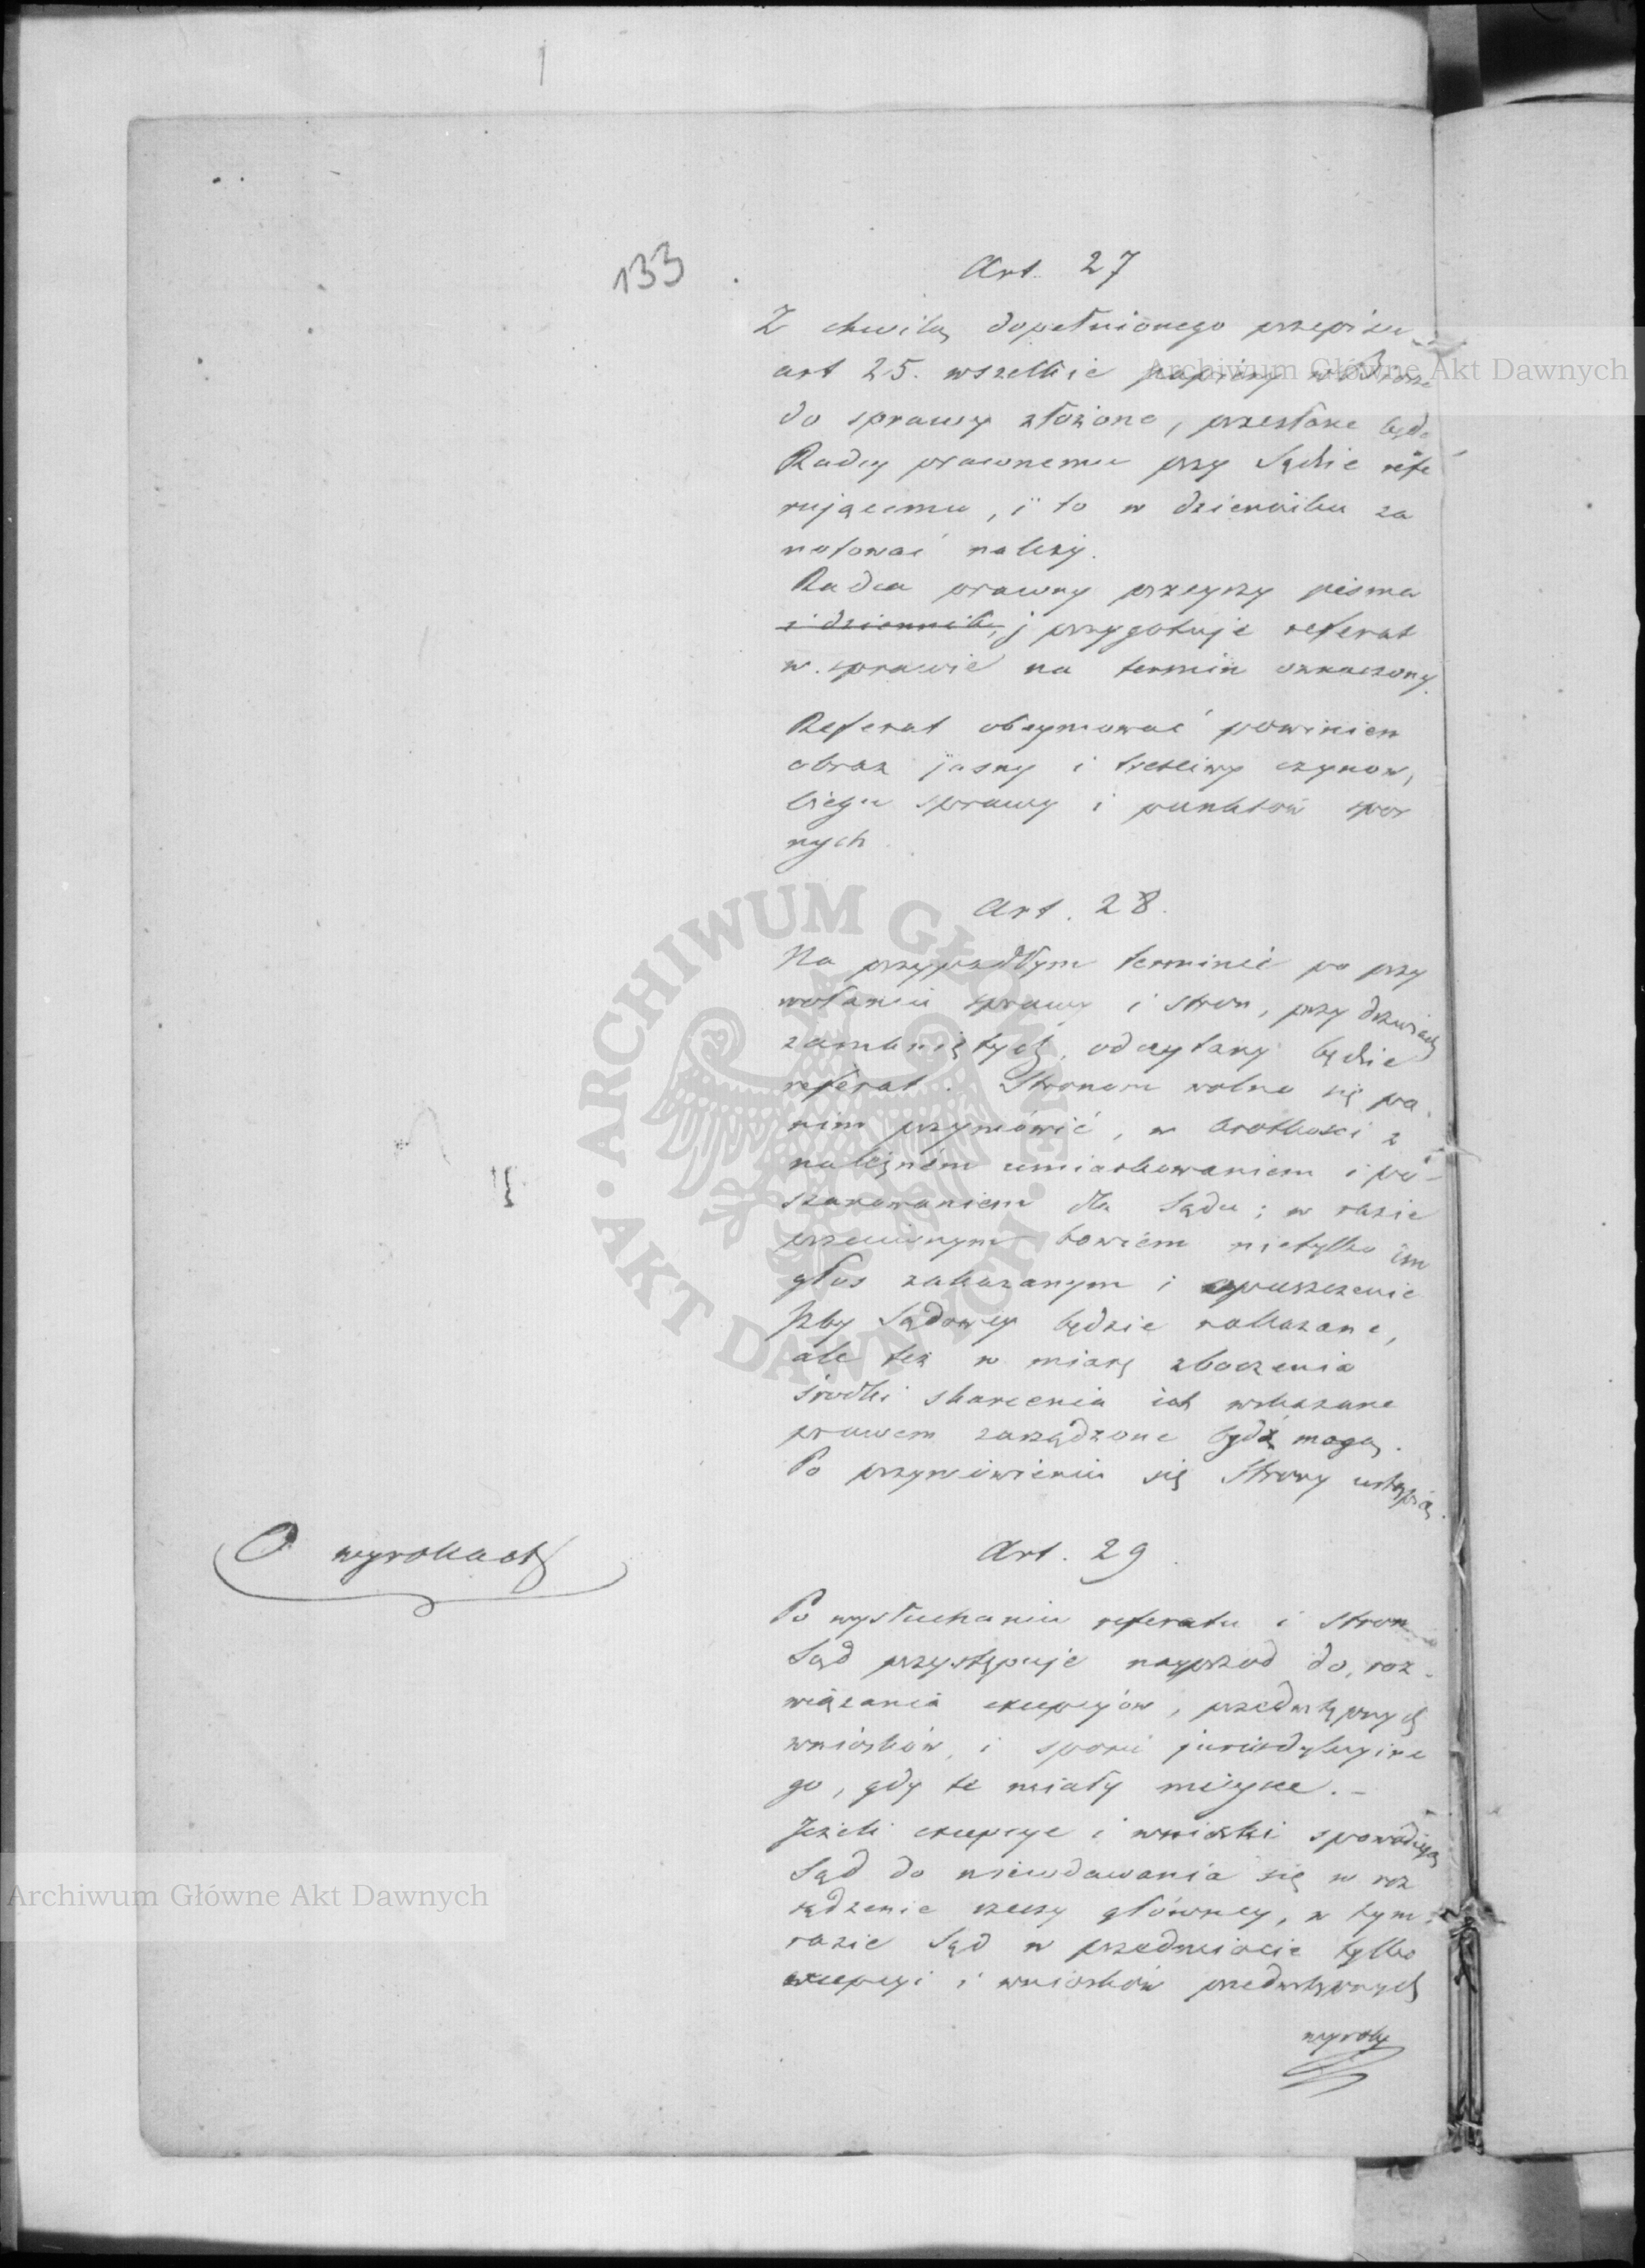 133
Art. 27
Z chwilą dopełnionego przepisu
art 25. wszelkie papiery w Biórze
do sprawy złożone, przesłane będą
Radcy prawnemu przy Sądzie refe
rującemu, i to w dzienniku za
notować należy.
Radca prawny przeyrzy pisma
i dziennik, j przygotuje referat
w sprawie na termin oznaczony.
Referat obeymować powinien
obraz jasny i treśliwy czynow,
biegu sprawy i punktów spor
nych
Art. 28.
Na przypadłym terminie po przy
wołaniu sprawy i stron, przy drzwiach
zamkniętych, odczytany będzie
referat. Stronom wolno się po
nim przymówić, w krótkości z
należnem umiarkowaniem i po-
szanowaniem dla Sądu; w razie
przeciwnym bowiem nietylko im
głos zakazanym i opuszczenie
Jzby Sądowey będzie nakazane,
ale też w miarę zboczenia
środki skarcenia ich wskazane
prawem zarządzone bydź mogą.
Po przymówieniu się Strony ustąpią.
O wyrokach
Art. 29.
Po wysłuchaniu referatu i stron
Sąd przystępuje nayprzod do roz-
wiązania excepcyów, przedwstępnych
wniosków, i sporu jurisdykcyine
go, gdy te miały mieysce. -
Jeżeli excepcye i wnioski spowodują
Sąd do niewdawania się w roz
sądzenie rzeczy główney, w tym
razie Sąd w przedmiocie tylko
excepcyi i wniosków przedwstępnych
wyroky
Archiwum Główne Akt Dawnych
Archiwum Główne Akt Dawnych
ARCHIWUM GŁÓWNE • AKT DAWNYCH •